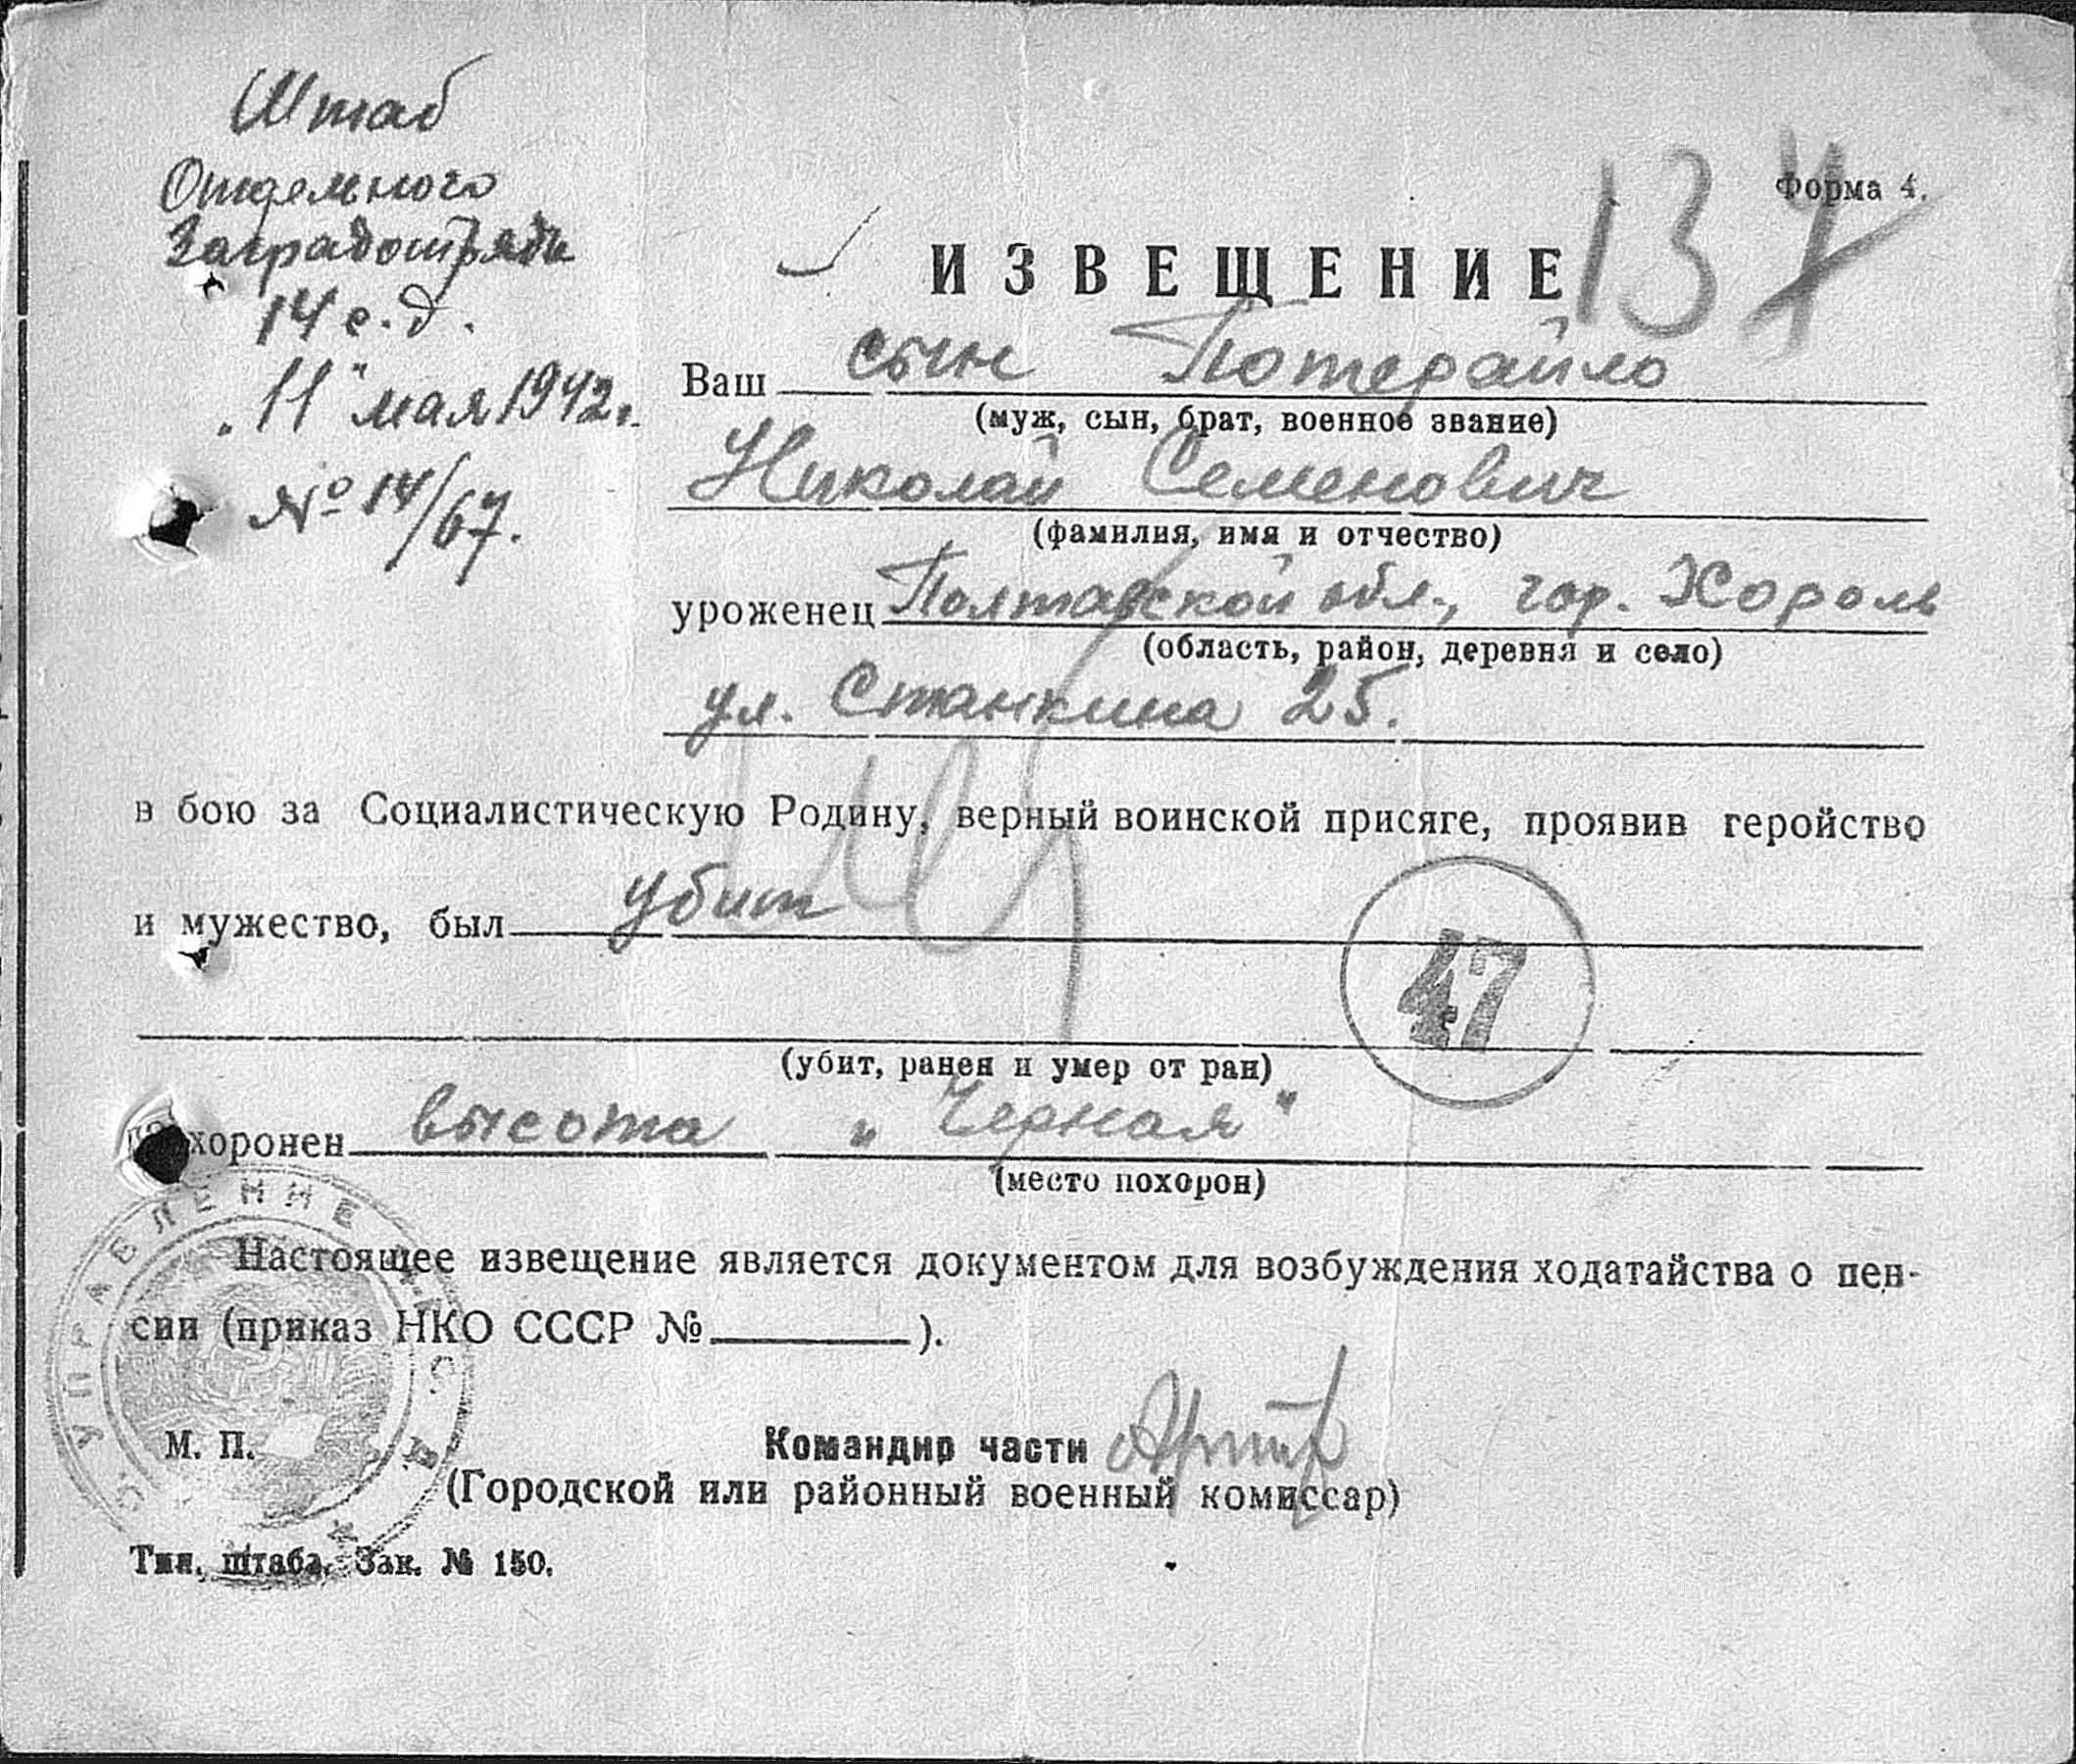 Штаб
Отдельного
Заградотряда
14 с.д.
„11" мая 1942г.
№ 14/67.
137
Форма 4.
ИЗВЕЩЕНИЕ
Ваш сын Потерайло
(муж, сын, брат, военное звание)
Николай Семенович
(фамилия, имя и отчество)
уроженец Полтавской обл., гор. Хороль
(область, район, деревня и село)
ул. Станкина 25.
в бою за Социалистическую Родину, верный воинской присяге, проявив геройство
и мужество, был убит
47
(убит, ранен и умер от ран)
похоронен высота „Черная"
(место похорон)
УПРАВЛЕНИЕ
Настоящее извещение является документом для возбуждения ходатайства о пен-
сии (приказ НКО СССР № ).
М. П.
Командир части
(Городской или районный военный комиссар)
Тип. штаба. Зак. № 150.